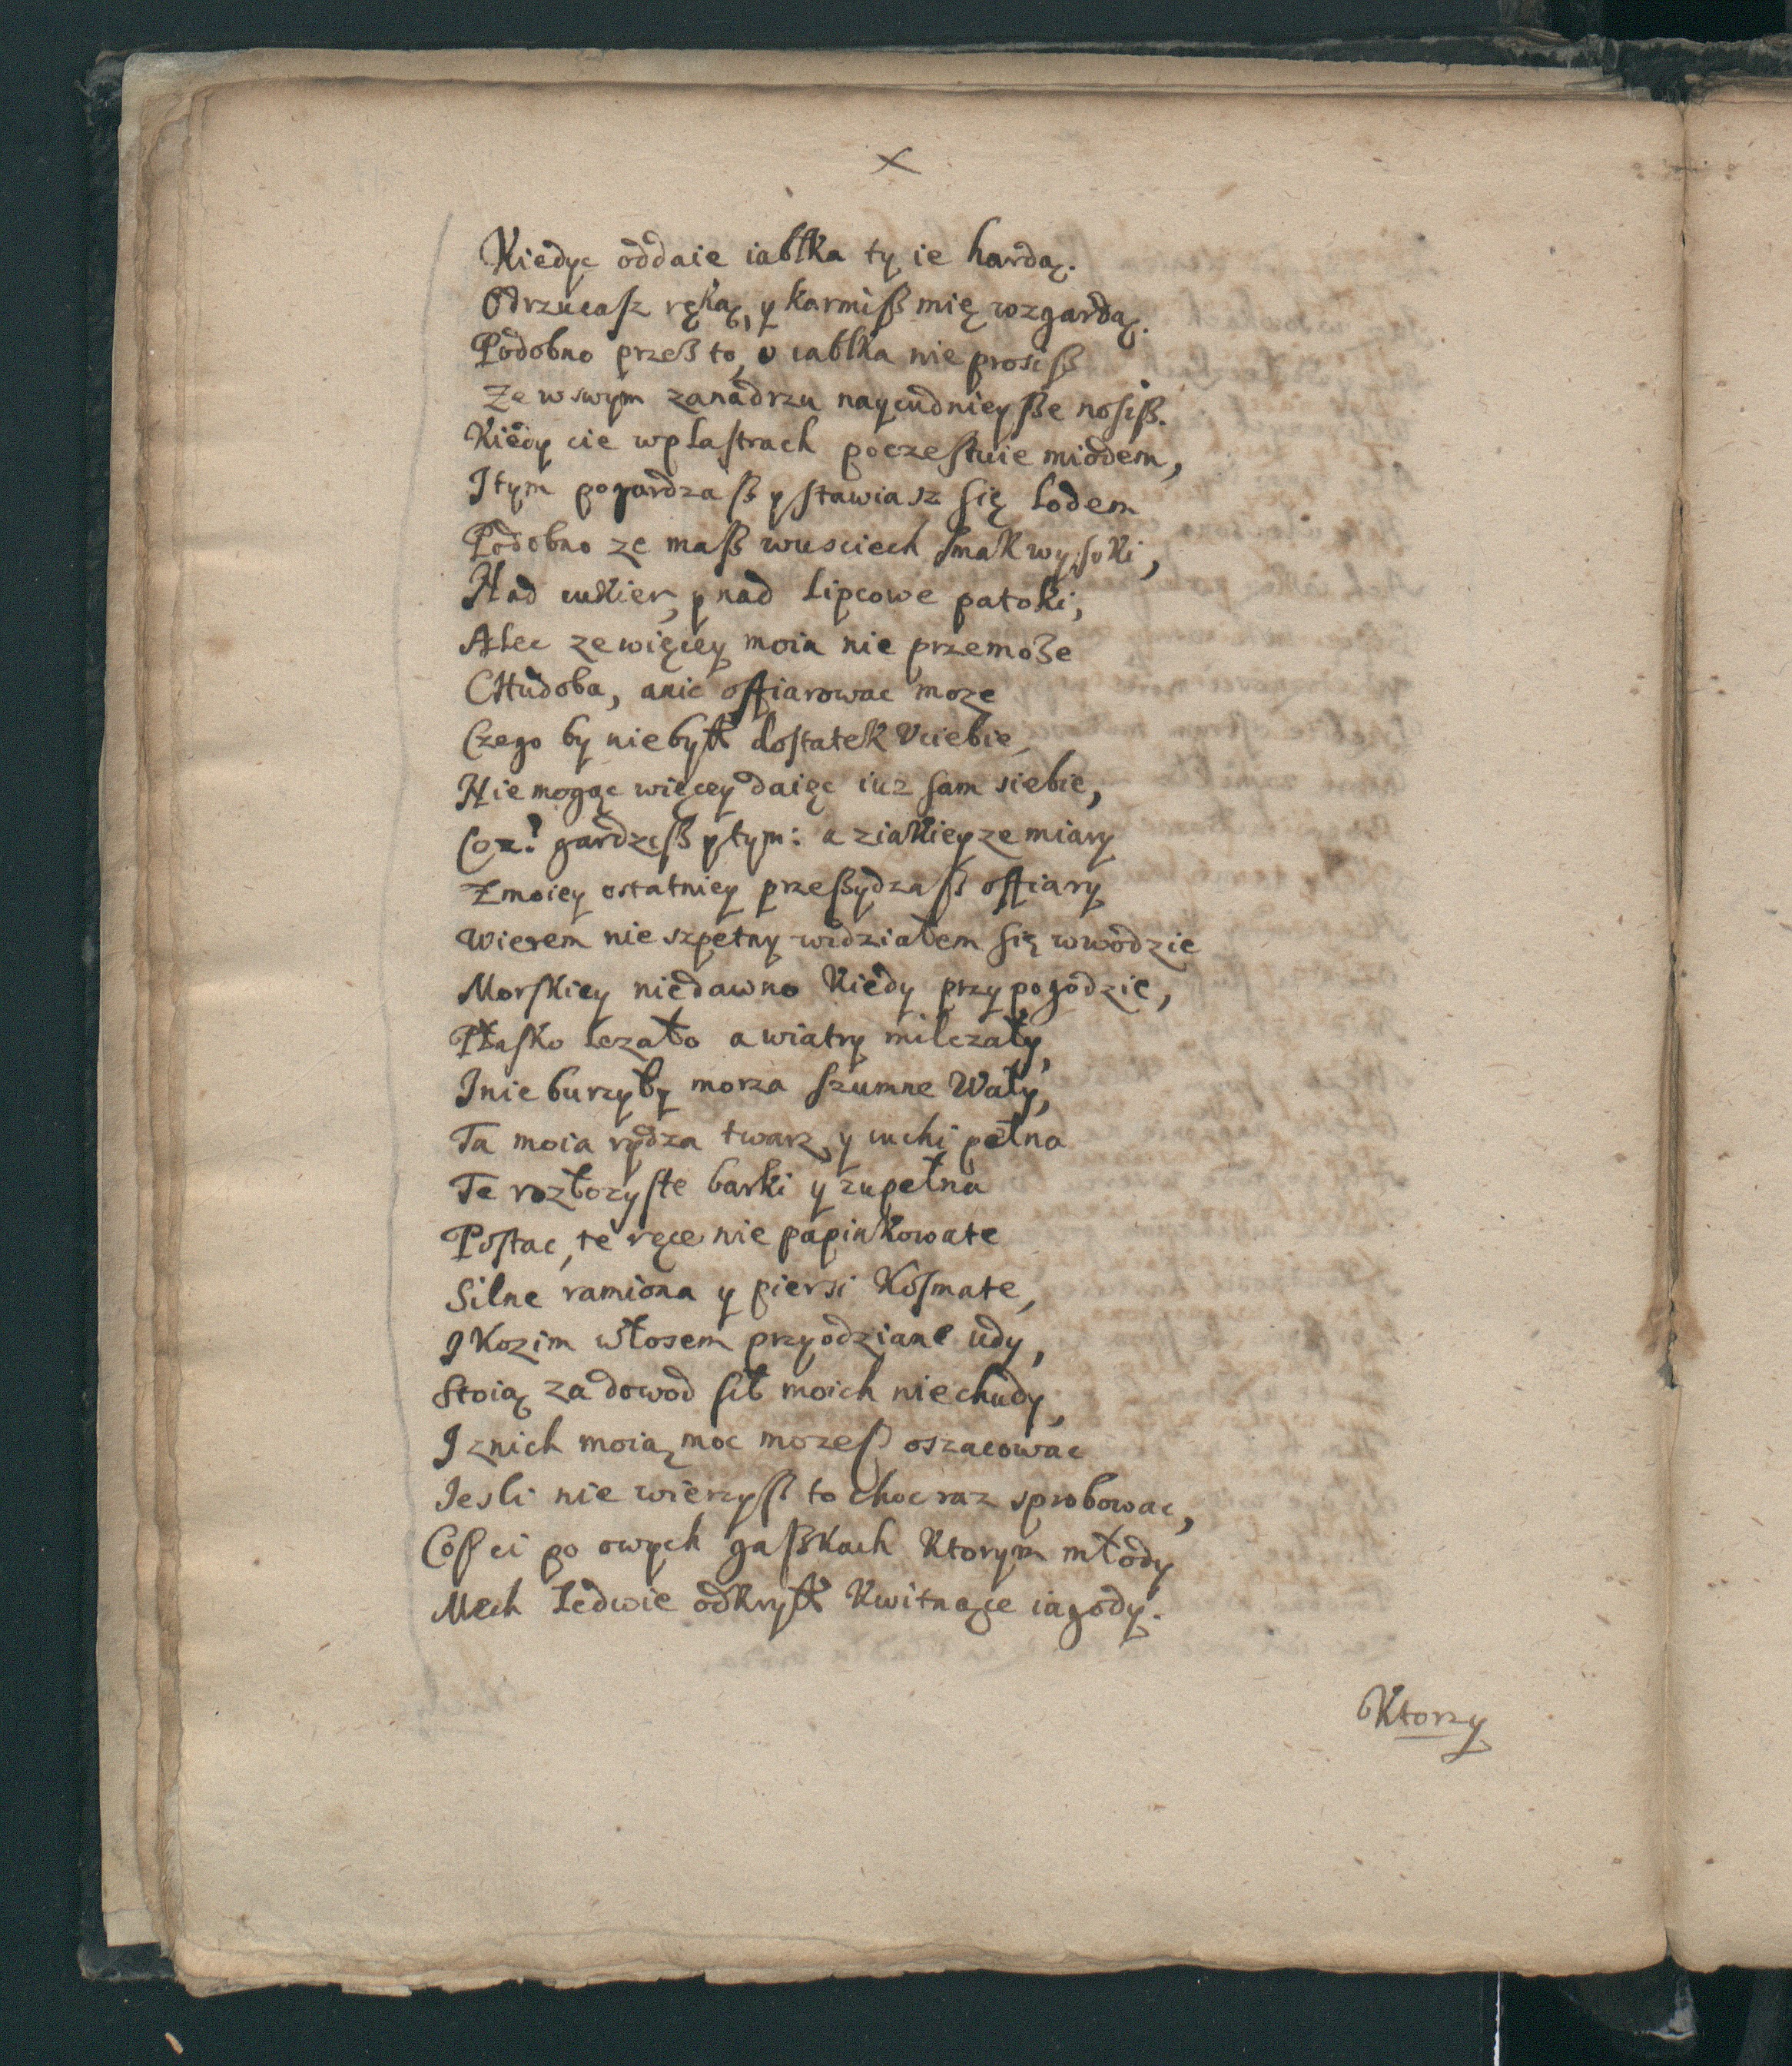 Kiedyc oddaie iabłka ty ie hardą.
Odrzucasz ręką, y karmiß mię wzgardą.
Podobno przeß to, o iabłka nie prosiß
Ze w swym zanadrzu naycudnieyße nosiß.
Kiedy cie w plastrach poczestuie miodem,
I tym pogardzaß y stawiasz się lodem
Podobno ze maß w usciech smak wysoki,
Nad cukier, y nad lipcowe patoki,
Alec ze więcey moia nie przemoże
CHudoba, anic offiarowac moze
Czego by niebył dostatek Uciebie,
Nie mogąc więcey daięc iuz sam siebie,
Coz? gardziß y tym: a ziakiey ze miary
Zmoiey ostatniey przeßydzaß offiary
Wierem nie szpetny widziałem się w wodzie
Morskiey niedawno kiedy przy pogodzie,
Płasko lezało a wiatry milczały,
I nie burzyły morza szumne Wały,
Ta moia rydza twarz, y cuchi pełna
Te rozłozyste barki y zupełna
Postac, te ręce nie papinkowate
Silne ramiona y piersi kosmate,
I kozim włosem przyodziane udy,
Stoią za dowod sił moich niechudy,
I znich moią moc mozeß oszacowac
Iesli nie wierzyß to choc raz sprobowac,
Coß ci po owych gaßkach ktorym młody
Mech ledwie odkrył kwitnące iagody.
Ktorzy